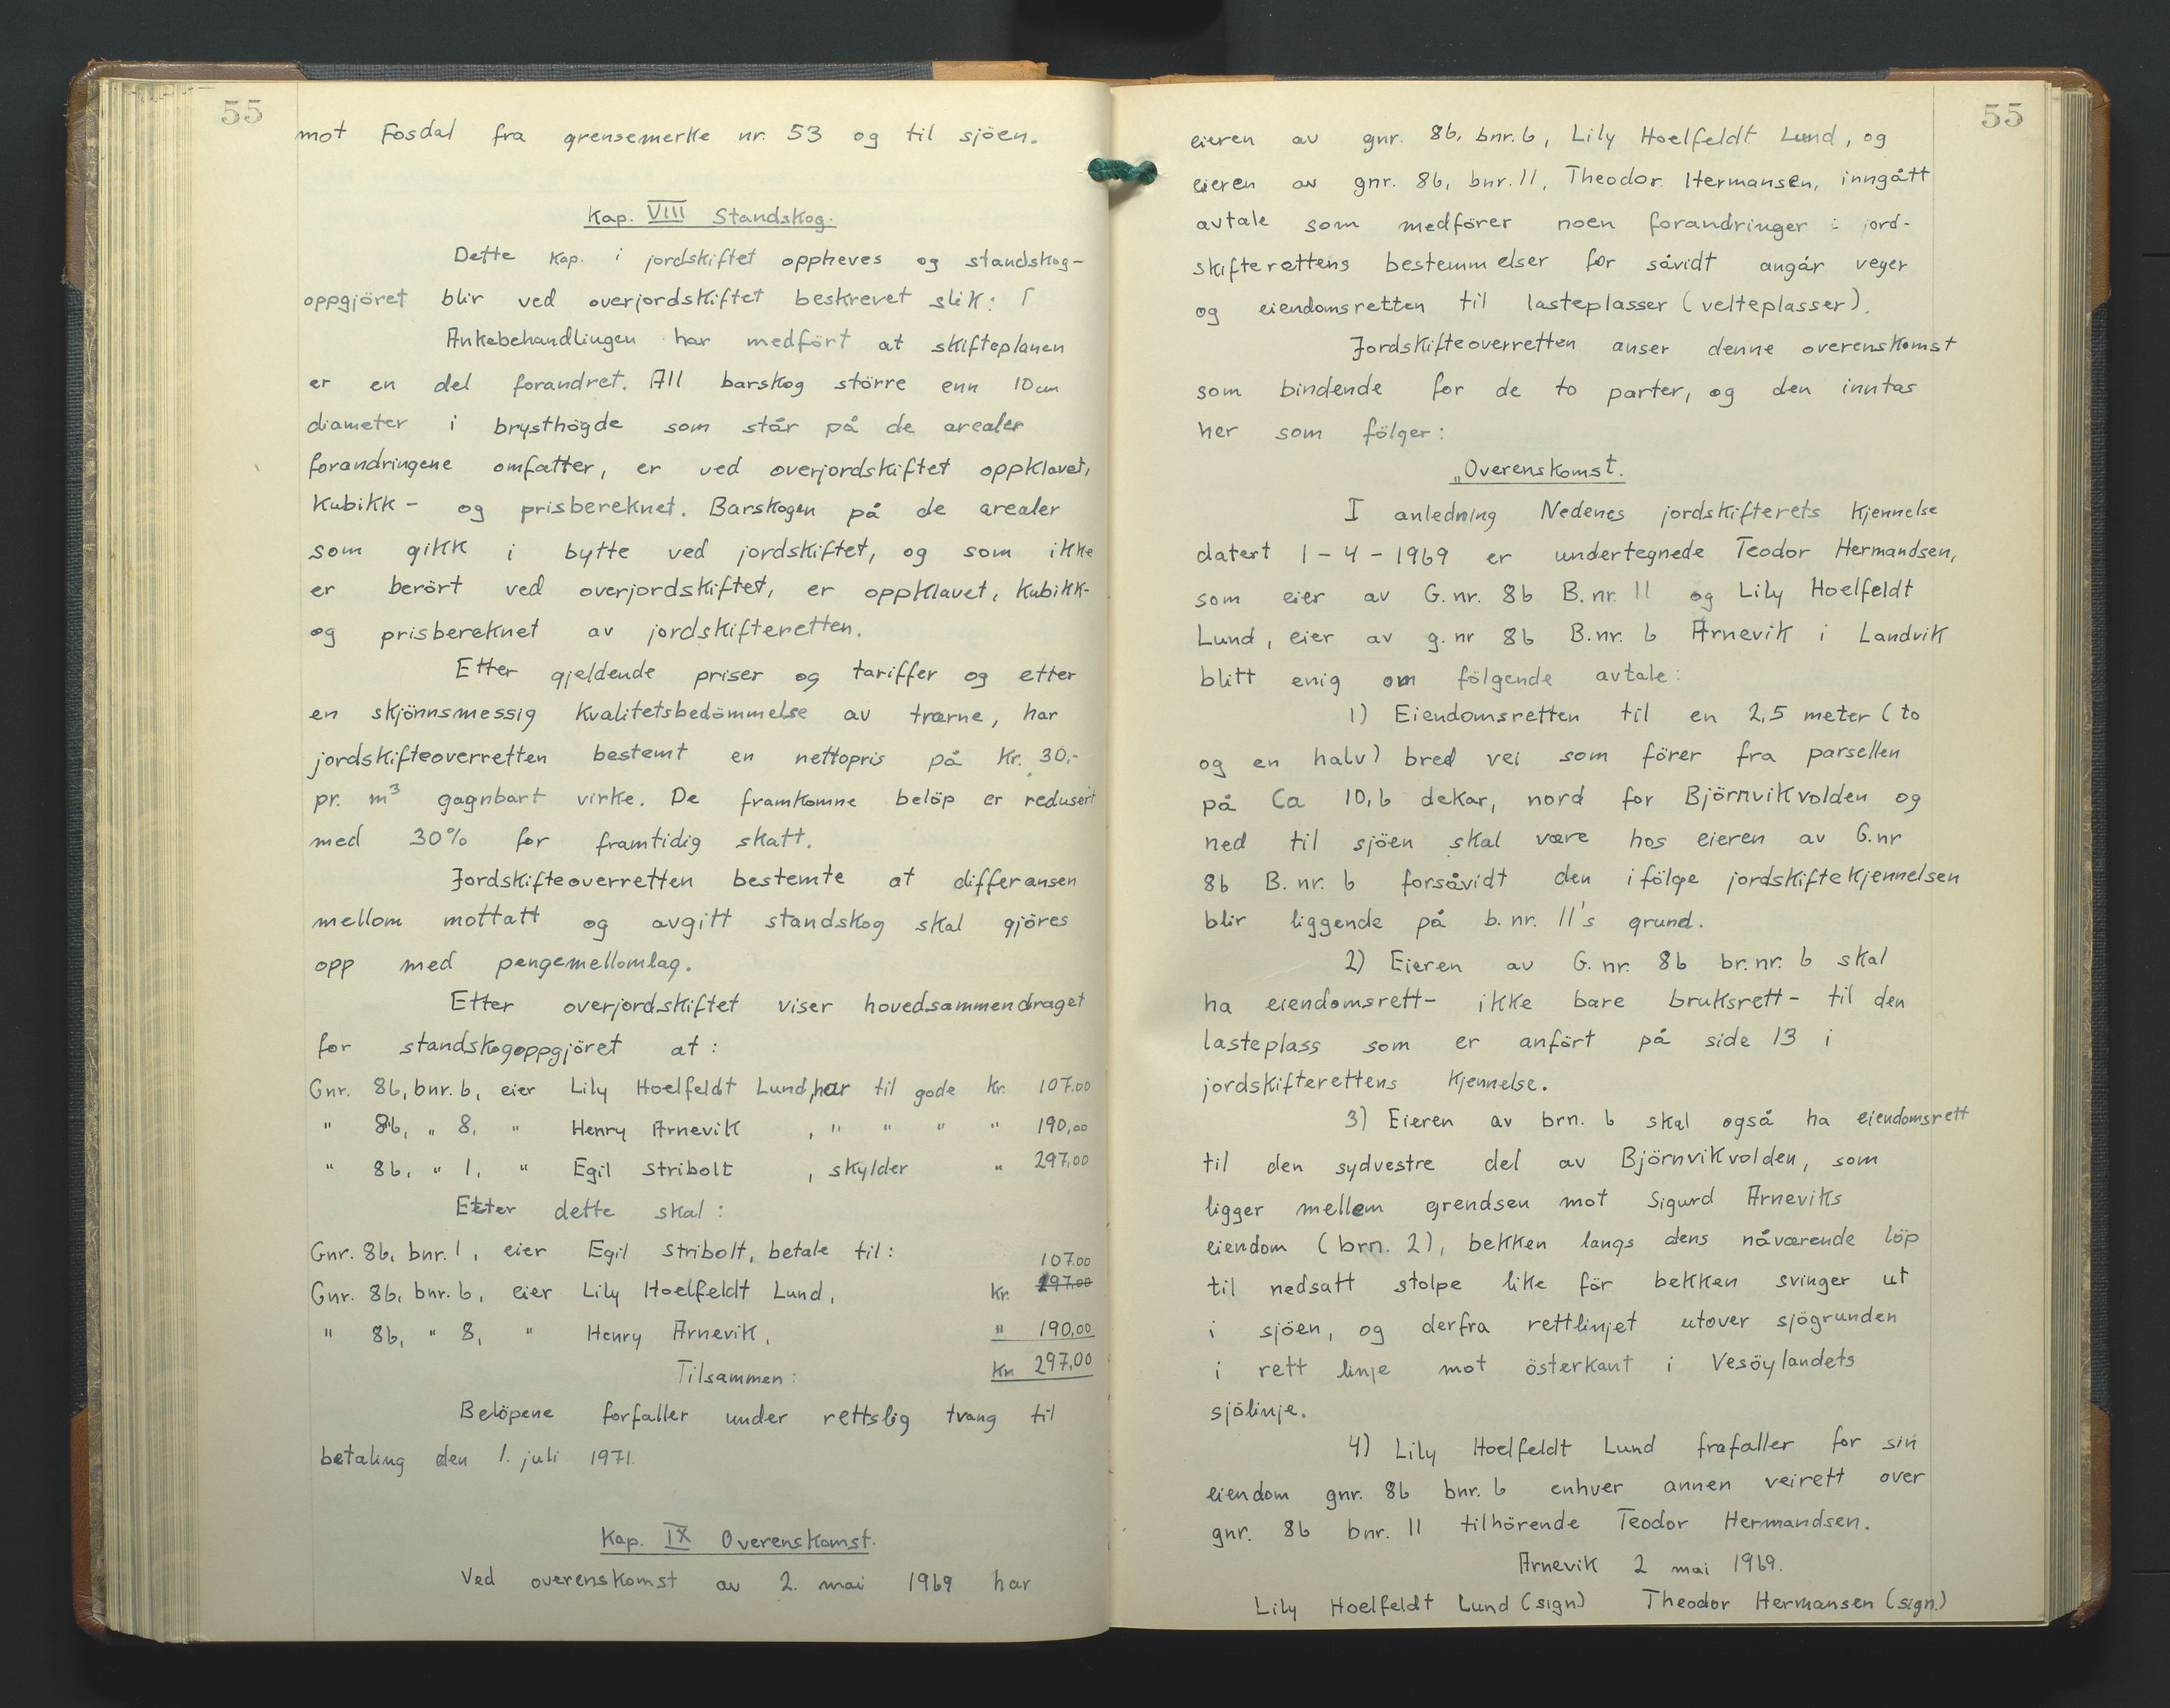 55
mot Fosdal fra grensemerke nr. 53 og til sjöen.
Kap. VIII Standskog.
Dette Kap. i jordskiftet oppheves og standskog-
oppgjöret blir ved overjordskiftet beskrevet slik:
Ankebehandlingen har medfört at skifteplanen
er en del forandret. All barskog större enn 10cm
diameter i brysthögde som står på de arealer
forandringene omfatter, er ved overjordskiftet oppklavet,
Kubikk- og prisbereknet. Barskogen på de arealer
som gikk i bytte ved jordskiftet, og som ikke
er berört ved overjordskiftet, er oppklavet, Kubikk-
og prisbereknet av jordskifteretten.
Etter gjeldende priser og tariffer og etter
en skjönnsmessig Kvalitetsbedömmelse av trærne, har
jordskifteoverretten bestemt en nettopris på Kr. 30,-
pr. m³ gagnbart virke. De framkomne belöp er redusert
med 30% for framtidig skatt.
Jordskifteoverretten bestemte at differansen
mellom mottatt og avgitt standskog skal gjöres
opp med pengemellomlag.
Etter overjordskiftet viser hovedsammendraget
for standskogoppgjöret at:
Gnr. 86, bnr. 6, eier Lily Hoelfeldt Lund, har til gode Kr. 107.00
" 86, " 8, " Henry Arnevik , " " " " 190,00
" 86, " 1, " Egil Stribolt , skylder " 297,00
Etter dette skal:
Gnr. 86, bnr. 1, eier Egil Stribolt, betale til:
107.00
Gnr. 86, bnr. 6, eier Lily Hoelfeldt Lund, Kr. 297.00
" 86, " 8, " Henry Arnevik, " 190,00
Tilsammen: Kr. 297,00
Belöpene forfaller under rettslig tvang til
betaling den 1. juli 1971.
Kap. IX Overenskomst.
Ved overenskomst av 2. mai 1969 har
55
eieren av gnr. 86, bnr. 6, Lily Hoelfeldt Lund, og
eieren av gnr. 86, bnr. 11, Theodor Hermansen, inngått
avtale som medförer noen forandringer i jord-
skifterettens bestemmelser for såvidt angår veger
og eiendomsretten til lasteplasser (velteplasser).
Jordskifteoverretten anser denne overenskomst
som bindende for de to parter, og den inntas
her som fölger:
„Overenskomst.
I anledning Nedenes jordskifterets Kjennelse
datert 1-4-1969 er undertegnede Teodor Hermandsen,
som eier av G.nr. 86 B.nr. 11 og Lily Hoelfeldt
Lund, eier av g.nr 86 B.nr. 6 Arnevik i Landvik
blitt enig om fölgende avtale:
1) Eiendomsretten til en 2,5 meter (to
og en halv) bred vei som förer fra parsellen
på Ca 10,6 dekar, nord for Björnvikvolden og
ned til sjöen skal være hos eieren av G.nr
86 B.nr. 6 forsåvidt den ifölge jordskiftekjennelsen
blir liggende på b.nr. 11's grund.
2) Eieren av G.nr. 86 br.nr. 6 skal
ha eiendomsrett- ikke bare bruksrett- til den
lasteplass som er anfört på side 13 i
jordskifterettens Kjennelse.
3) Eieren av brn. 6 skal også ha eiendomsrett
til den sydvestre del av Björnvikvolden, som
ligger mellem grendsen mot Sigurd Arneviks
eiendom (brn. 2), bekken langs dens nåværende löp
til nedsatt stolpe like för bekken svinger ut
i sjöen, og derfra rettlinjet utover sjögrunden
i rett linje mot österkant i Vesöylandets
sjölinje.
4) Lily Hoelfeldt Lund frafaller for sin
eiendom gnr. 86 bnr. 6 enhver annen veirett over
gnr. 86 bnr. 11 tilhörende Teodor Hermandsen.
Arnevik 2 mai 1969.
Lily Hoelfeldt Lund (sign) Theodor Hermansen (sign.)